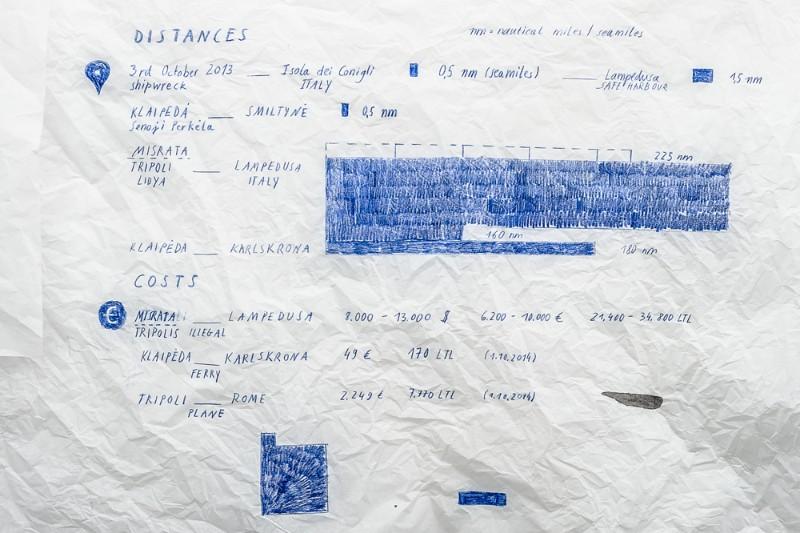 DISTANCES
nm = nautical miles / seamiles
3rd October 2013 — Isola dei Conigli 0,5 nm (seamiles) — Lampedusa 1,5 nm
shipwreck ITALY SAFE HARBOUR
KLAIPĖDA — SMILTYNĖ 0,5 nm
Senoji Perkėla
MISRATA
225 nm
TRIPOLI — LAMPEDUSA
LIDYA ITALY
160 nm
KLAIPĖDA — KARLSKRONA 180 nm
COSTS
€ MISRATA — LAMPEDUSA 8.000 - 13.000 $ 6.200 - 10.000 € 21,400 - 34.800 LTL
TRIPOLIS ILLEGAL
KLAIPĖDA — KARLSKRONA 49 € 170 LTL (1.10.2014)
FERRY
TRIPOLI — ROME 2.249 € 7.770 LTL (1.10.2014)
PLANE